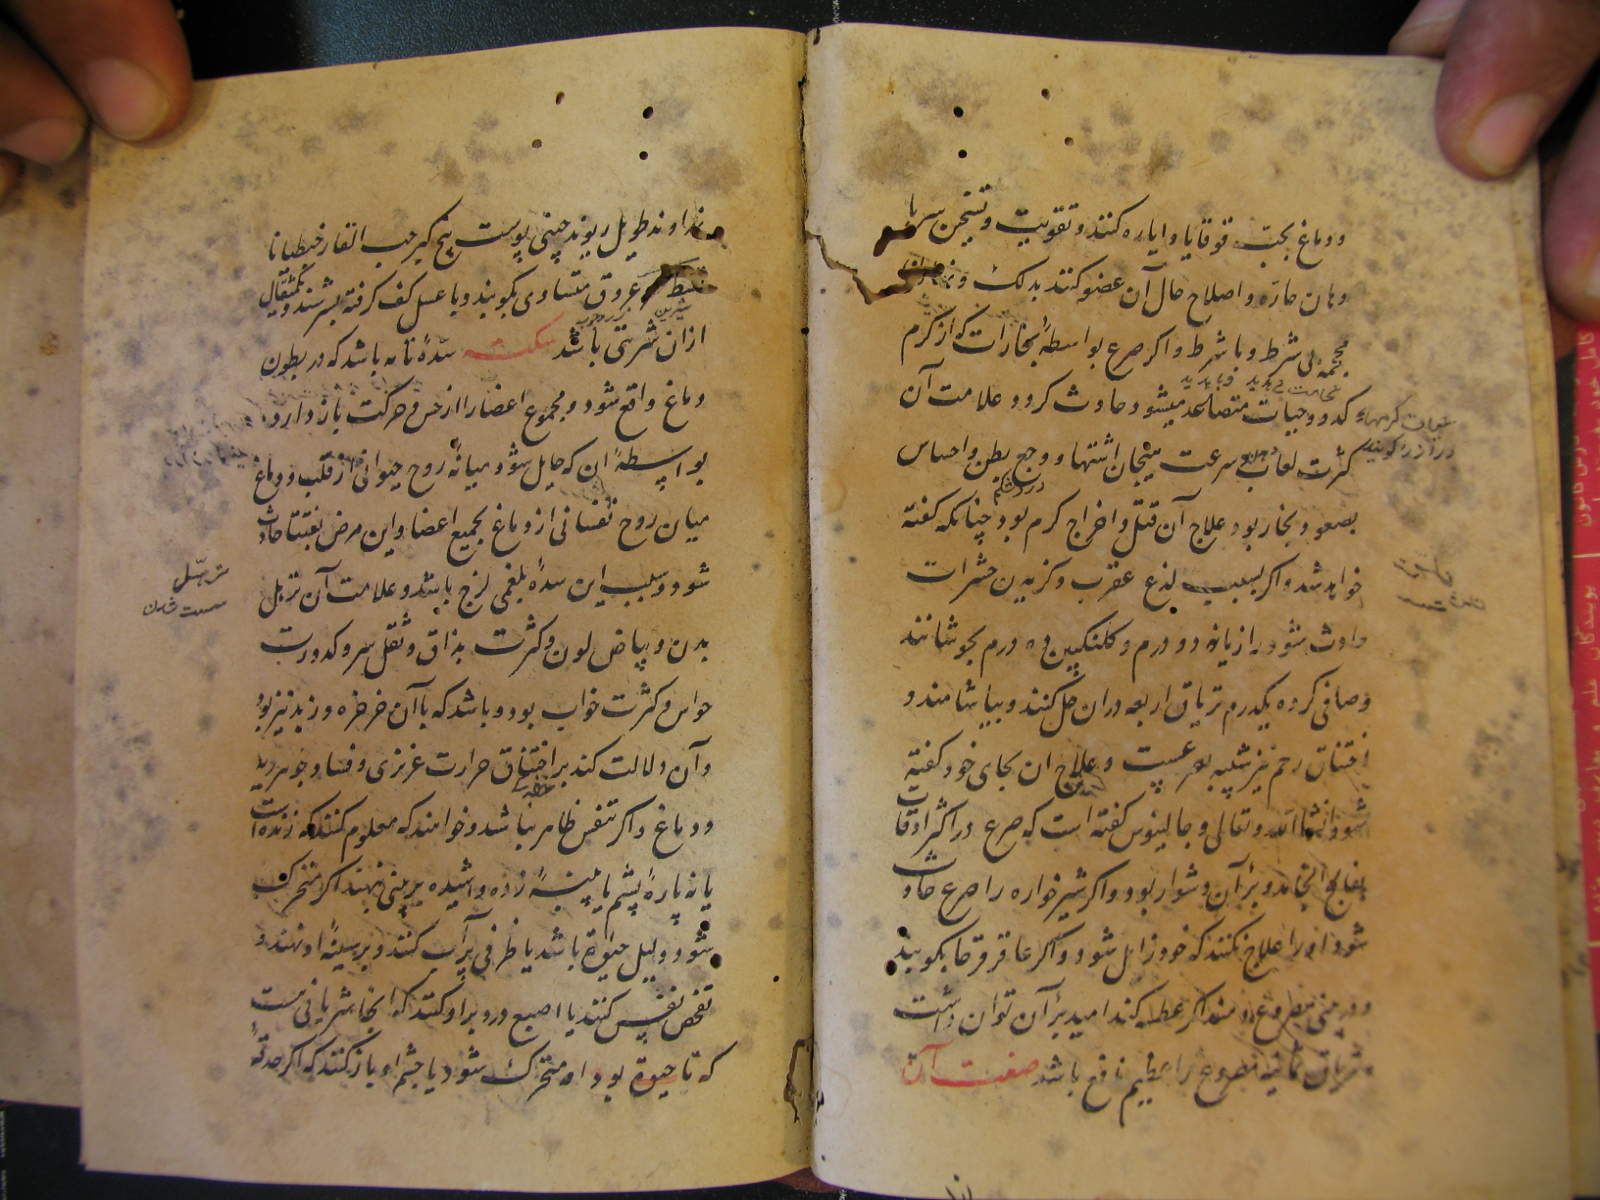 ودماغ بحب قوقایا و ایاره کنند و تقویت و تسخین سر با
دهان حاره و اصلاح حال آن عضو کنند بدلک و
محجمه بی شرط و با شرط و اکر صرع بواسطهٔ بخارات که از کرم
کدو و حیات متصاعد میشود حادث کردد علامت آن
کثرت لعاب دهن و سرعت هیجان اشتها و وجع بطن و احساس
درد شکم
بصعود بخار بود علاج آن قتل و اخراج کرم بود چنانکه کفته
خواهد شد و اکر بسبب لذع عقرب و کزیدن حشرات
حادث شود رازیانه دو درم و کلنکبین ده درم بجوشانند
و صافی کرده یکدرم تریاق اربعه دران حل کنند و بیاشامند و
اختناق رحم نیز شبیه بصرعست و علاج ان بجای خود کفته
شود انشاالله تعالی و جالینوس کفته است که صرع در اکثر اوقات
بفالج انجامد و برٔ آن دشوار بود و اکر شیرخواره را صرع حادث
شود او را علاج نکنند که خود زایل شود و اکر عاقرقرحا بکوبند
و در بینی مصروع دمند اکر عطسه کند امید برٔ آن توان داشت
و تریاق ثمانیه مصروع را عظیم نافع باشد صفت آن
زراوند طویل ریوند چینی پوست بیخ کبر حب الغار جنطیانا
عروق متساوی بکوبند و با عسل کف کرفته بسرشند و یکمثقال
ازان شربتی باشد سکته سدهٔ تامه باشد که در بطون
دماغ واقع شود و مجموع اعضا را از حس و حرکت باز دارد
بواسطهٔ ان که حایل شود میانهٔ روح حیوانی از قلب و دماغ
میان روح نفسانی از دماغ بجمیع اعضا و این مرض بغتتا حادث
شود و سبب این سدهٔ بلغمی لزج باشد و علامت آن ترهل
ترهل
سست شدن
بدن و بیاض لون و کثرت بذاق و ثقل سر و کدورت
حواس و کثرت خواب بود و باشد که با آن خرخره و زبد نیز بود
و آن دلالت کند بر اختناق حرارت غریزی و فساد جوهر ریه
و دماغ و اکر تنفس ظاهر نباشد و خواهند که معلوم کنند که زنده است
یا نه پارهٔ پشم یا پنبهٔ زده واشیده بر بینی نهند اکر متحرک
شود دلیل حیوة باشد یا ظرفی پرآب کنند و بر سینهٔ او نهند و
تفحص نفس کنند یا اصبع در دبر او کنند که انجا شریانی هست
که تا حیوة بود او متحرک شود یا چشم او باز کنند که اکر حدقهٔ